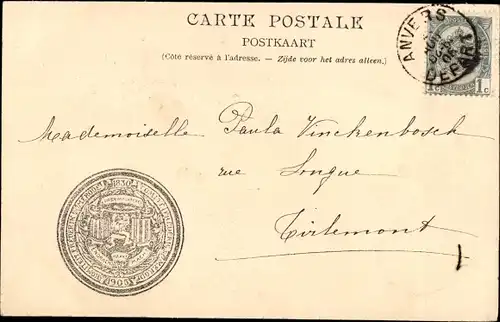 CARTE POSTALE
POSTKAART
(Côté réservé à l'adresse. — Zijde voor het adres alleen.)
ANVERS
DEPART
1c 1c
Mademoiselle Paula Vinckenbosch
rue Longue
Tirlemont
1830